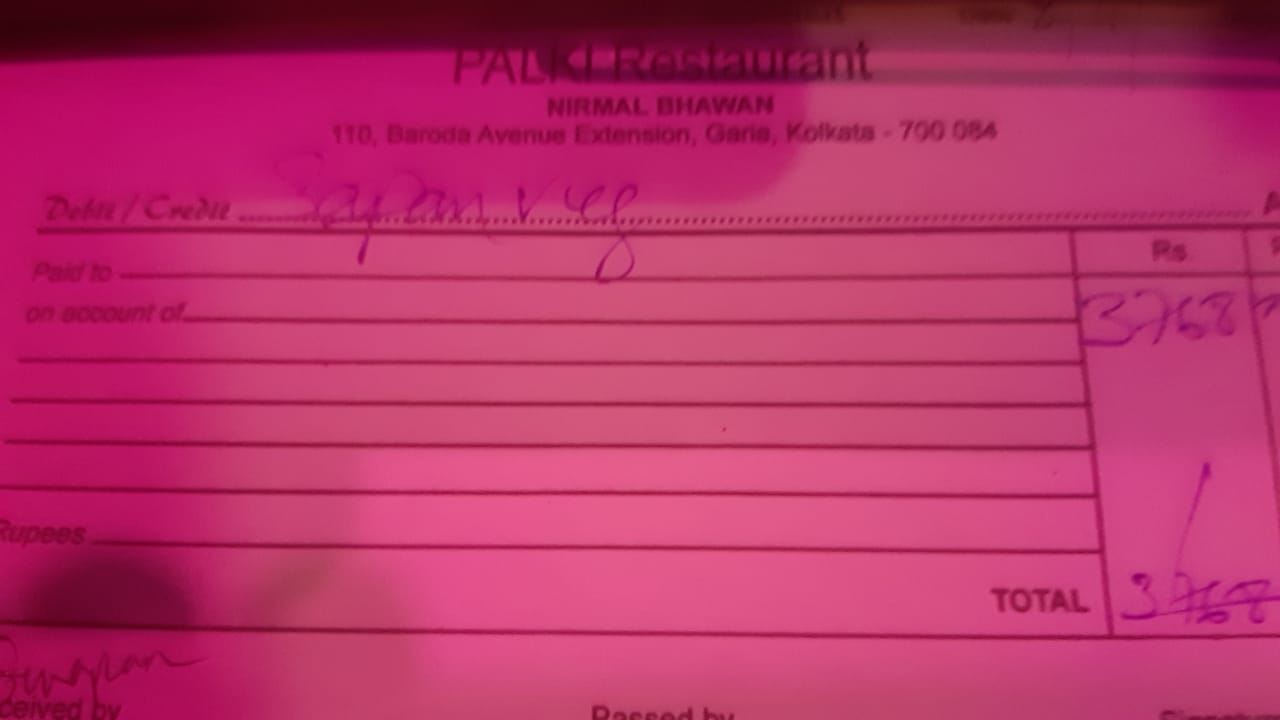 PALKI Restaurant
NIRMAL BHAWAN
110, Baroda Avenue Extension, Garia, Kolkata - 700 084
Debit / Credit Sapan veg
Rs.
Paid to
on account of 3768
Rupees
TOTAL 3768
Passed by